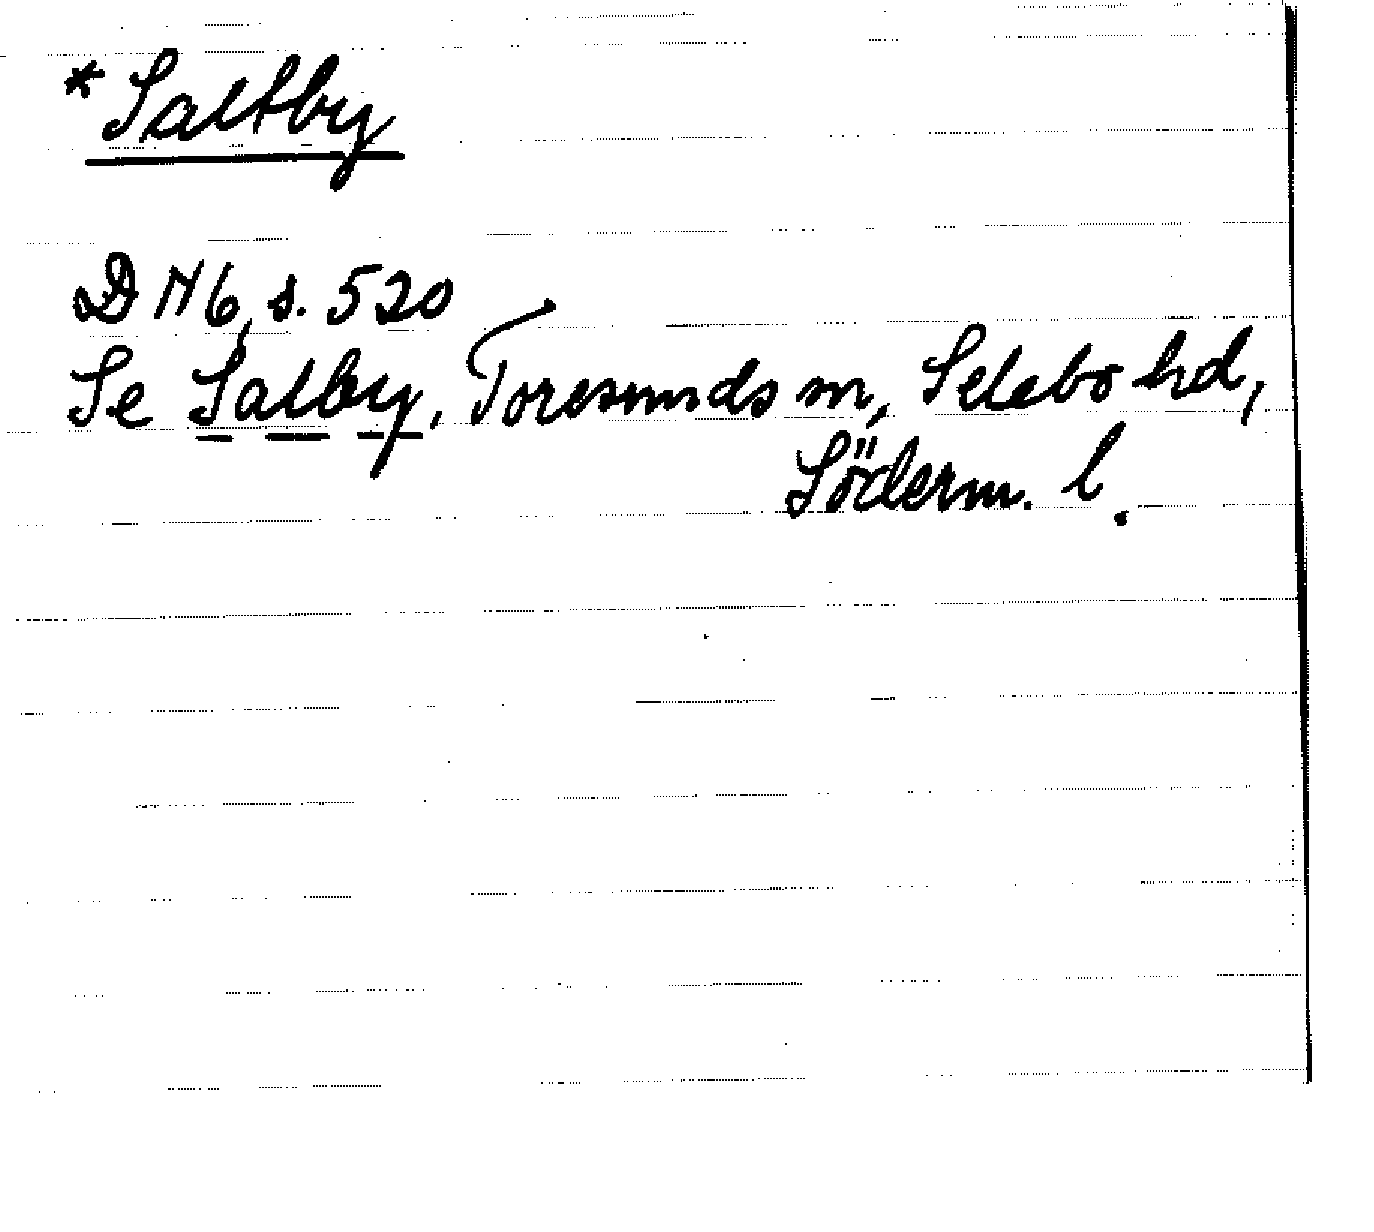 *Saltby
DN6, s. 520
Se Salby, Toresunds sn, Selebo hd,
Söderm. l.